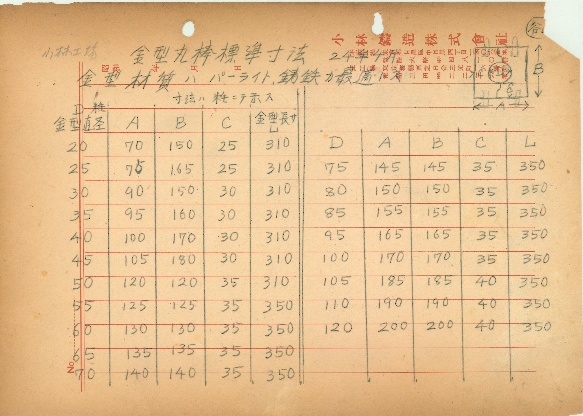 小林鑄造株式會社
小林工場
金型丸棒標準寸法
金型材質ハパーライト鋳鉄ガ最適トス
寸法ハ粍ニテ示ス
D粍
金型直径 A B C 金型長サL
20 70 150 25 310
25 75 165 25 310
30 90 150 30 310
35 95 160 30 310
40 100 170 30 310
45 105 180 30 310
50 120 120 35 310
55 125 125 35 350
60 130 130 35 350
65 135 135 35 350
70 140 140 35 350
D A B C L
75 145 145 35 350
80 150 150 35 350
85 155 155 35 350
95 165 165 35 350
100 170 170 35 350
105 185 185 40 350
110 190 190 40 350
120 200 200 40 350
B
A
No.